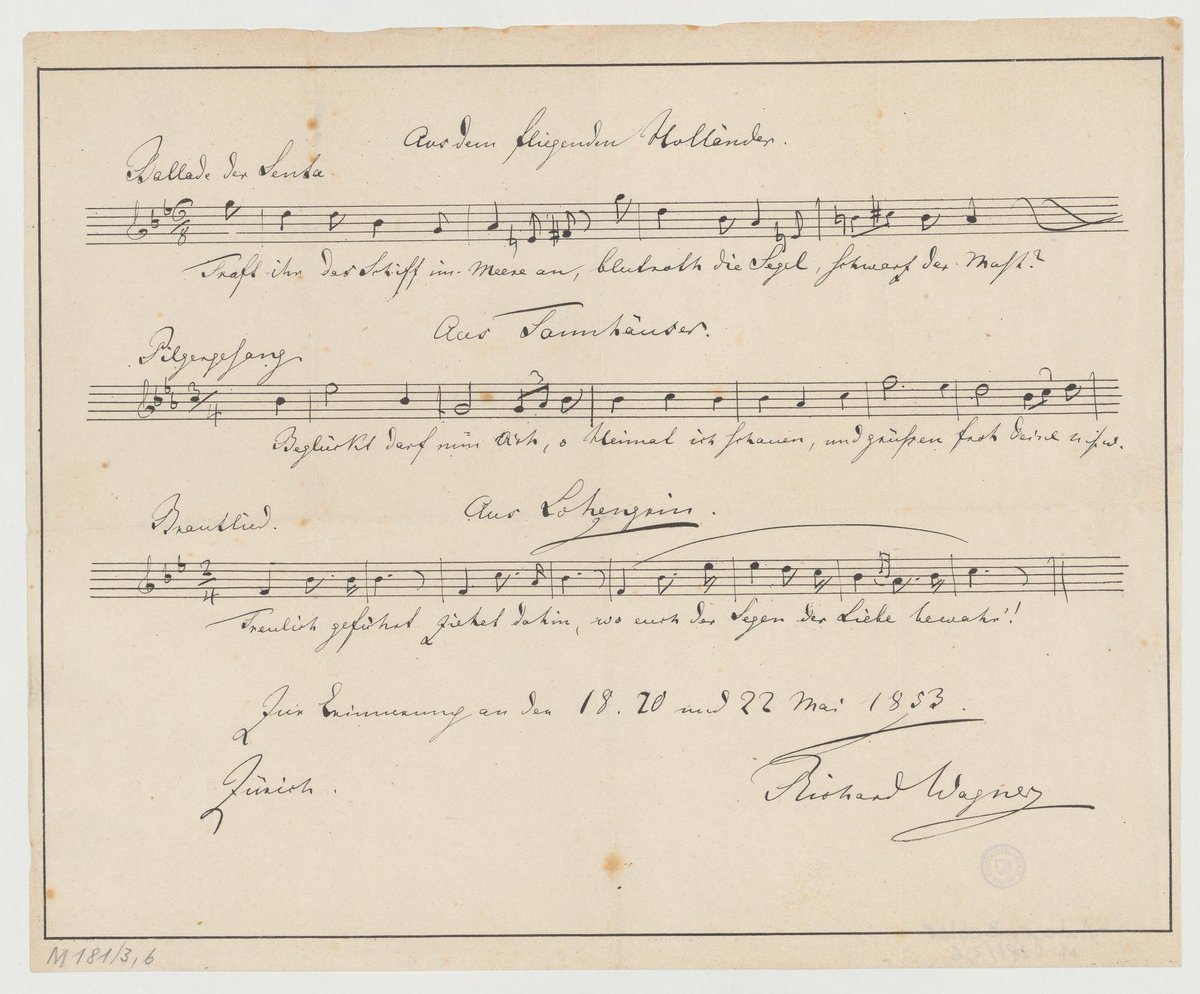 Aus dem fliegenden Holländer.
Ballade der Senta.
6/8
Traft ihr das Schiff im Meere an, blutroth die Segel, schwarz der Mast?
Aus Tannhäuser.
Pilgergesang
3/4
3
3
Beglückt darf nun dich, o Heimat ich schauen, und grüßen froh deine u.s.w.
Aus Lohengrin.
Brautlied.
2/4
Treulich geführt ziehet dahin, wo euch der Segen der Liebe bewahr'!
Zur Erinnerung an den 18. 20 und 22 Mai 1853.
Zürich.
Richard Wagner
M 181/3,6